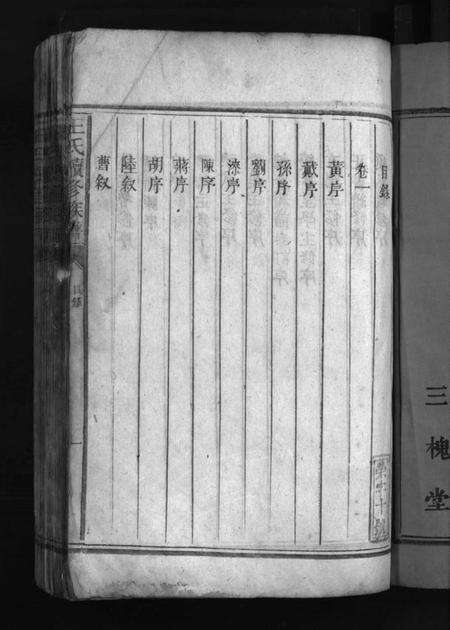 目錄
卷一
黃序
戴序
孫序
劉序
濮序
陳序
蔣序
胡序
陸敘
曹敘
王氏續修族譜
目錄
一
三槐堂